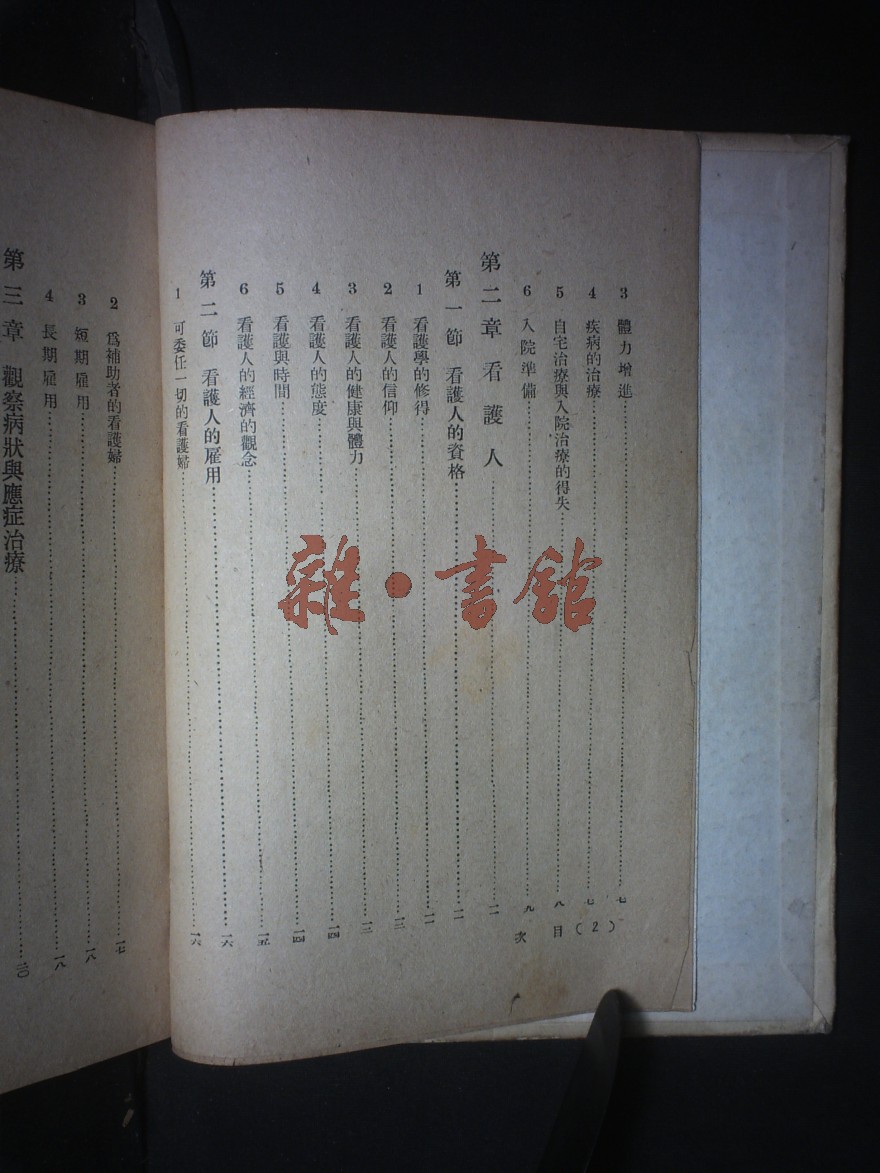 3 體力增進 七
4 疾病的治療 七
5 自宅治療與入院治療的得失 八
6 入院準備 九
第二章 看護人 一一
第一節 看護人的資格 一一
1 看護學的修得 一一
2 看護人的信仰 一三
3 看護人的健康與體力 一三
4 看護人的態度 一四
5 看護與時間 一四
6 看護人的經濟的觀念 一五
第二節 看護人的雇用 一六
1 可委任一切的看護婦 一六
目次 (2)
2 爲補助者的看護婦 一七
3 短期雇用 一八
4 長期雇用 一八
第三章 觀察病狀與應症治療 二〇
雜·書館